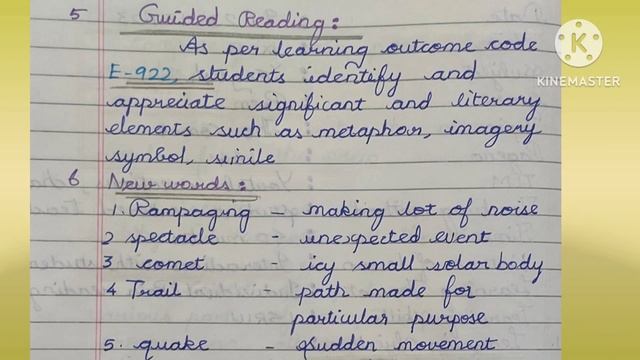 5 Guided Reading:
As per learning outcome code
E-922, students identify and
appreciate significant and literary
elements such as metaphor, imagery
symbol, simile
6 New words:
1. Rampaging - making lot of noise
2 spectacle - unexpected event
3 comet - icy small solar body
4 Trail - path made for
particular purpose
5. quake - sudden movement
K
KINEMASTER